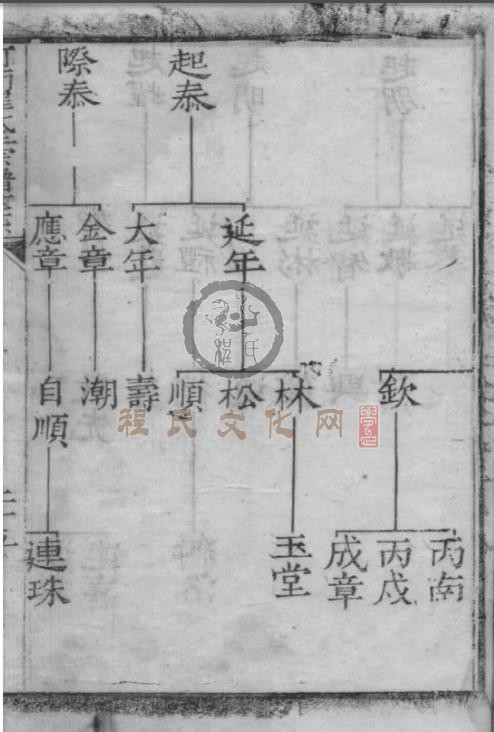 起泰
際泰
延年
大年
金章
應章
欽
林
松
順
壽
潮
自順
丙南
丙戍
成章
玉堂
連珠
程氏文化网